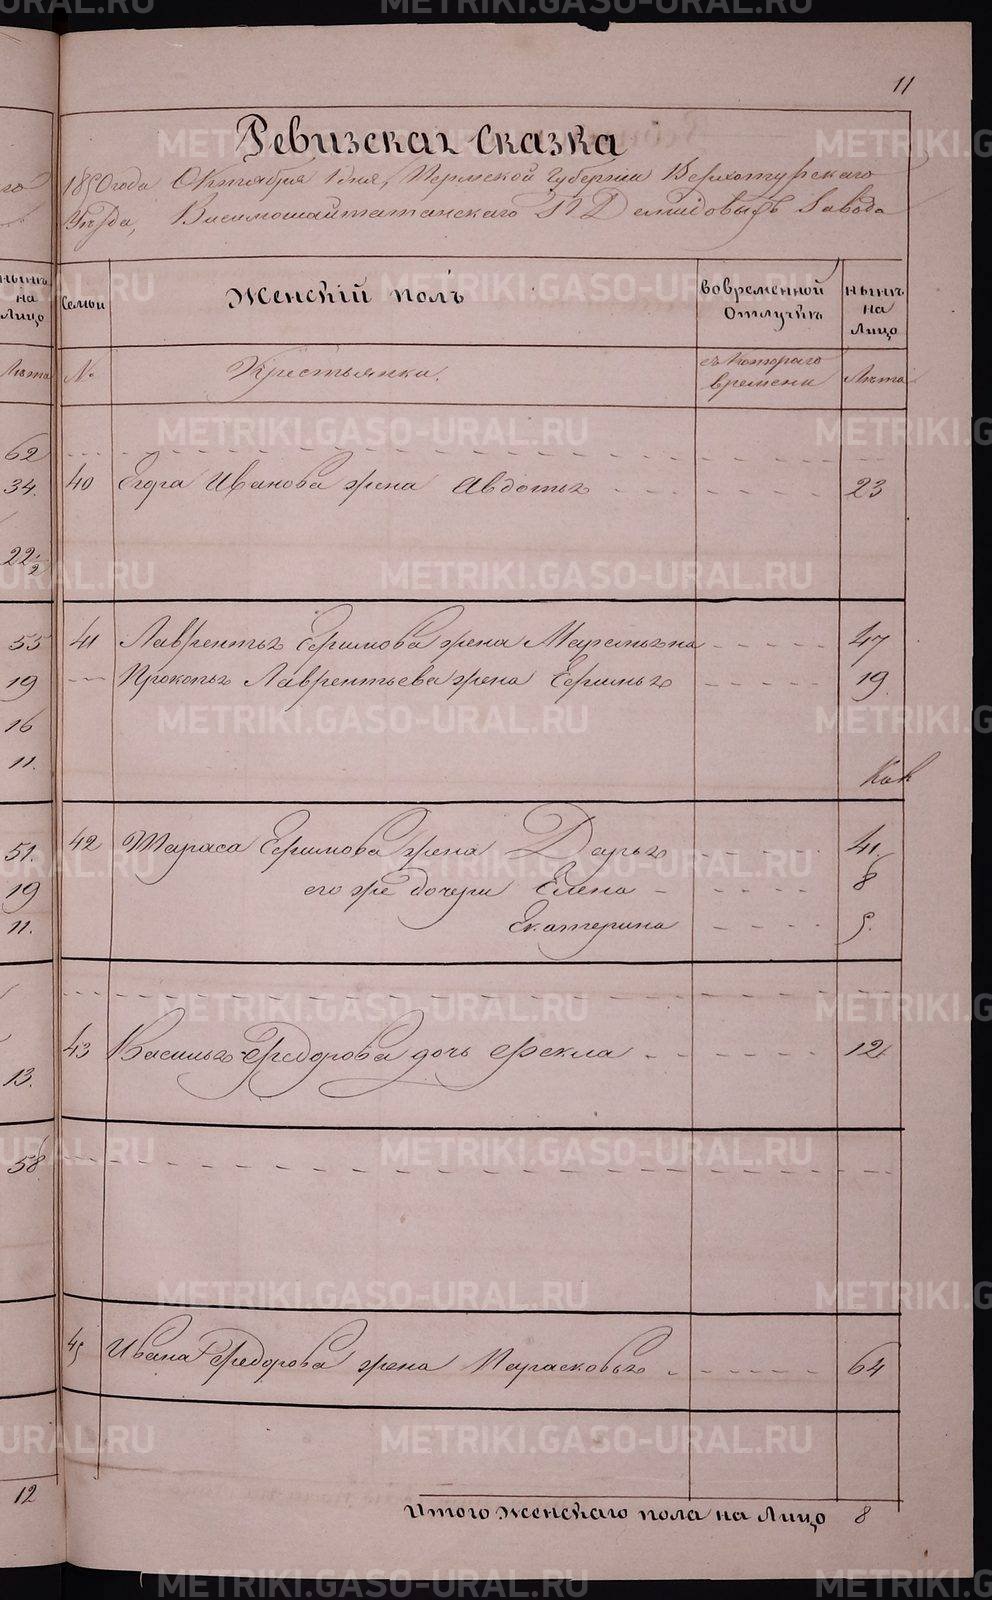 11
Ревизская Сказка
го 1850 года Октября 1 дня, Пермской Губернии Верхотурского
Уезда, Висимошайтанского П. П. Демидовыхъ Завода
ныне на Лицо
Семьи
Женскій полъ
вовременной Отлучке
ныне на Лицо
Лета
№
Крестьянки.
съ котораго времени
Лета
62
34. 40 Егора Иванова жена Авдотья 23
22½
55 41 Лаврентья Ефимова жена Маремьяна 47
19 Прокопья Лаврентьева жена Ефимья 19
16
11.
51. 42 Тараса Ефимова жена Дарья 41.
19 его же дочери Елена 8
11. Екатерина 5.
43 Василья Федорова дочь Фекла 12
13.
58
45 Ивана Федорова жена Парасковья 64
12
Итого Женскаго пола на Лицо 8
METRIKI.GASO-URAL.RU